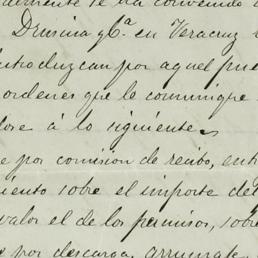 se ha convenido
Drusina y Cª en Veracruz
introduzcan por aquel pue
ordenes que le comunique
dose à lo siguiente
por comision de recibo, entr
iento sobre el importe del
valor el de los permisos, sobr
por descarga, arrumage